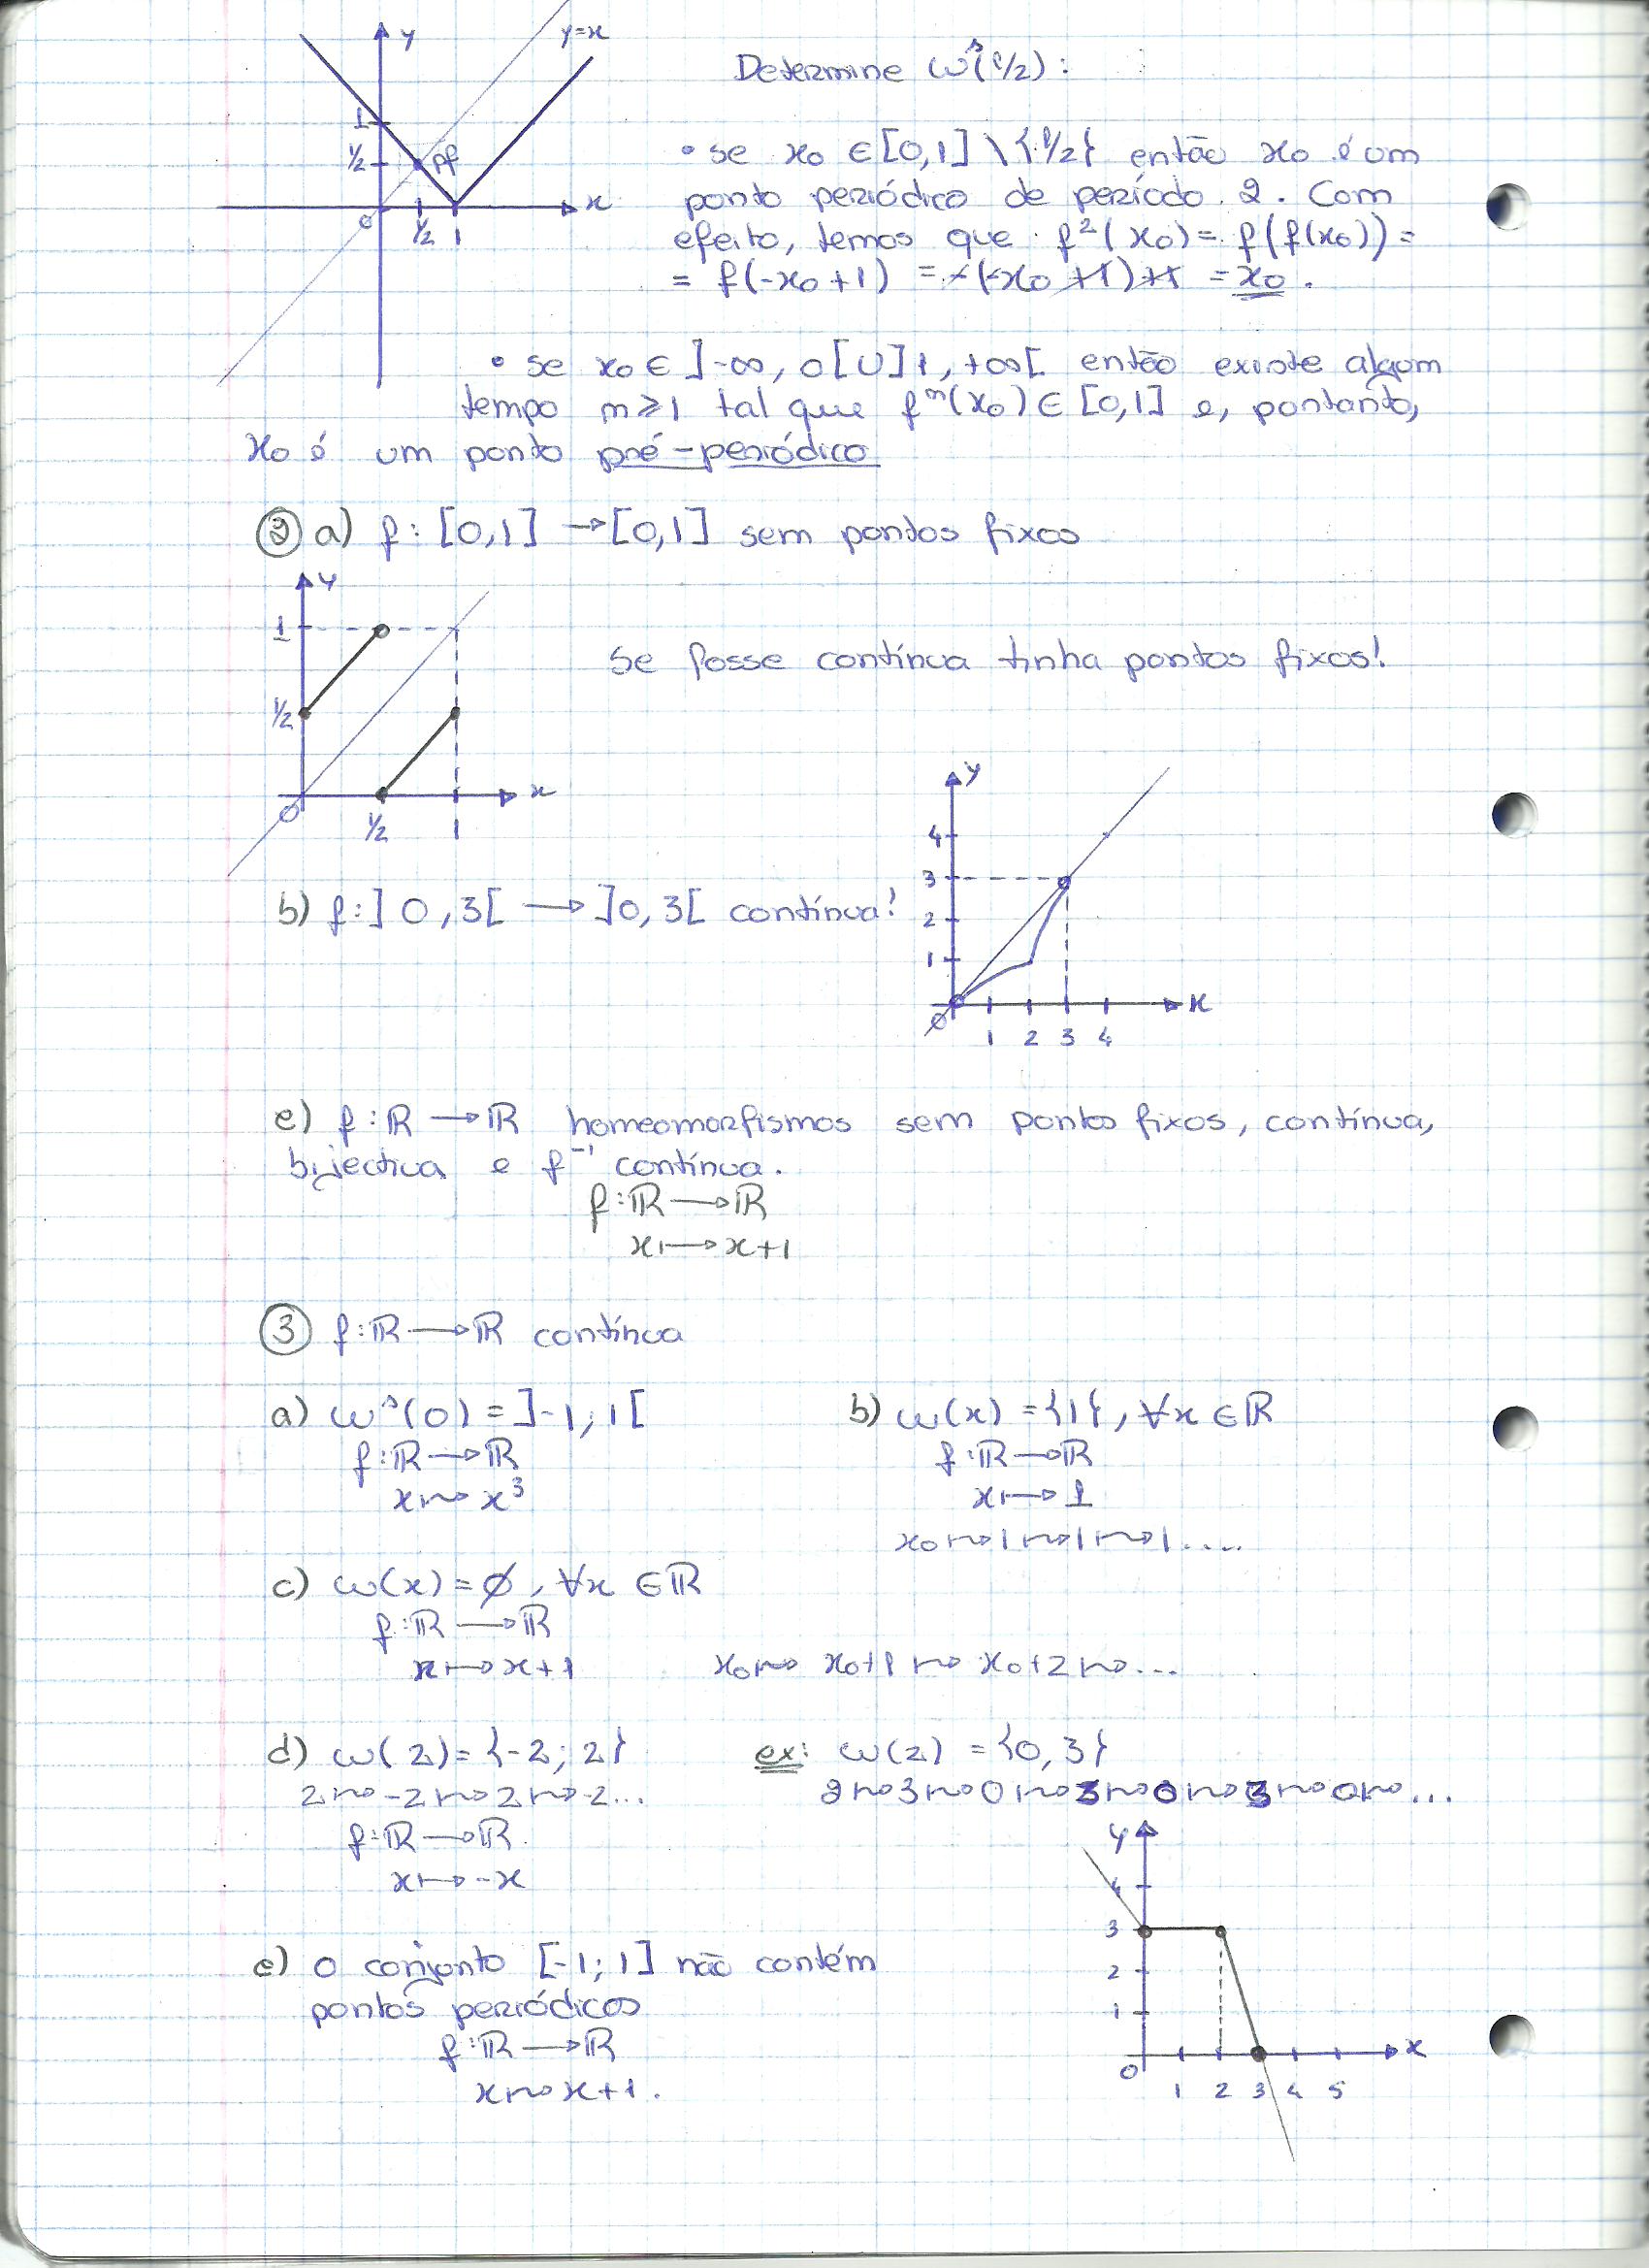 y
y=x
1
1/2
pf
0
1/2
1
x
Determine ωˢ(1/2):
• se x₀ ∈ [0,1] \ {1/2} então x₀ é um
ponto periódico de período 2. Com
efeito, temos que f²(x₀) = f(f(x₀)) =
= f(-x₀+1) = -(-x₀+1)+1 = x₀.
• se x₀ ∈ ]-∞, 0[ ∪ ]1, +∞[ então existe algum
tempo m ≥ 1 tal que fᵐ(x₀) ∈ [0,1] e, portanto,
x₀ é um ponto pré-periódico
② a) f: [0,1] → [0,1] sem pontos fixos
y
1
1/2
0
1/2
1
x
Se fosse contínua tinha pontos fixos!
b) f: ]0,3[ → ]0,3[ contínua!
y
4
3
2
1
0
1 2 3 4
x
c) f: ℝ → ℝ homeomorfismos sem pontos fixos, contínua,
bijectiva e f⁻¹ contínua.
f: ℝ → ℝ
x ↦ x+1
③ f: ℝ → ℝ contínua
a) ωˢ(0) = ]-1, 1[
f: ℝ → ℝ
x ⇝ x³
b) ω(x) = {1}, ∀x ∈ ℝ
f: ℝ → ℝ
x ↦ 1
x₀ ⇝ 1 ⇝ 1 ⇝ 1 ....
c) ω(x) = ∅, ∀x ∈ ℝ
f: ℝ → ℝ
x ↦ x+1
x₀ ⇝ x₀+1 ⇝ x₀+2 ⇝ ...
d) ω(2) = {-2; 2}
2 ⇝ -2 ⇝ 2 ⇝ -2...
f: ℝ → ℝ
x ↦ -x
ex: ω(2) = {0, 3}
2 ⇝ 3 ⇝ 0 ⇝ 3 ⇝ 0 ⇝ 3 ⇝ 0 ⇝ ...
y
4
3
2
1
0
1 2 3 4 5
x
e) O conjunto [-1; 1] não contém
pontos periódicos
f: ℝ → ℝ
x ⇝ x+1.